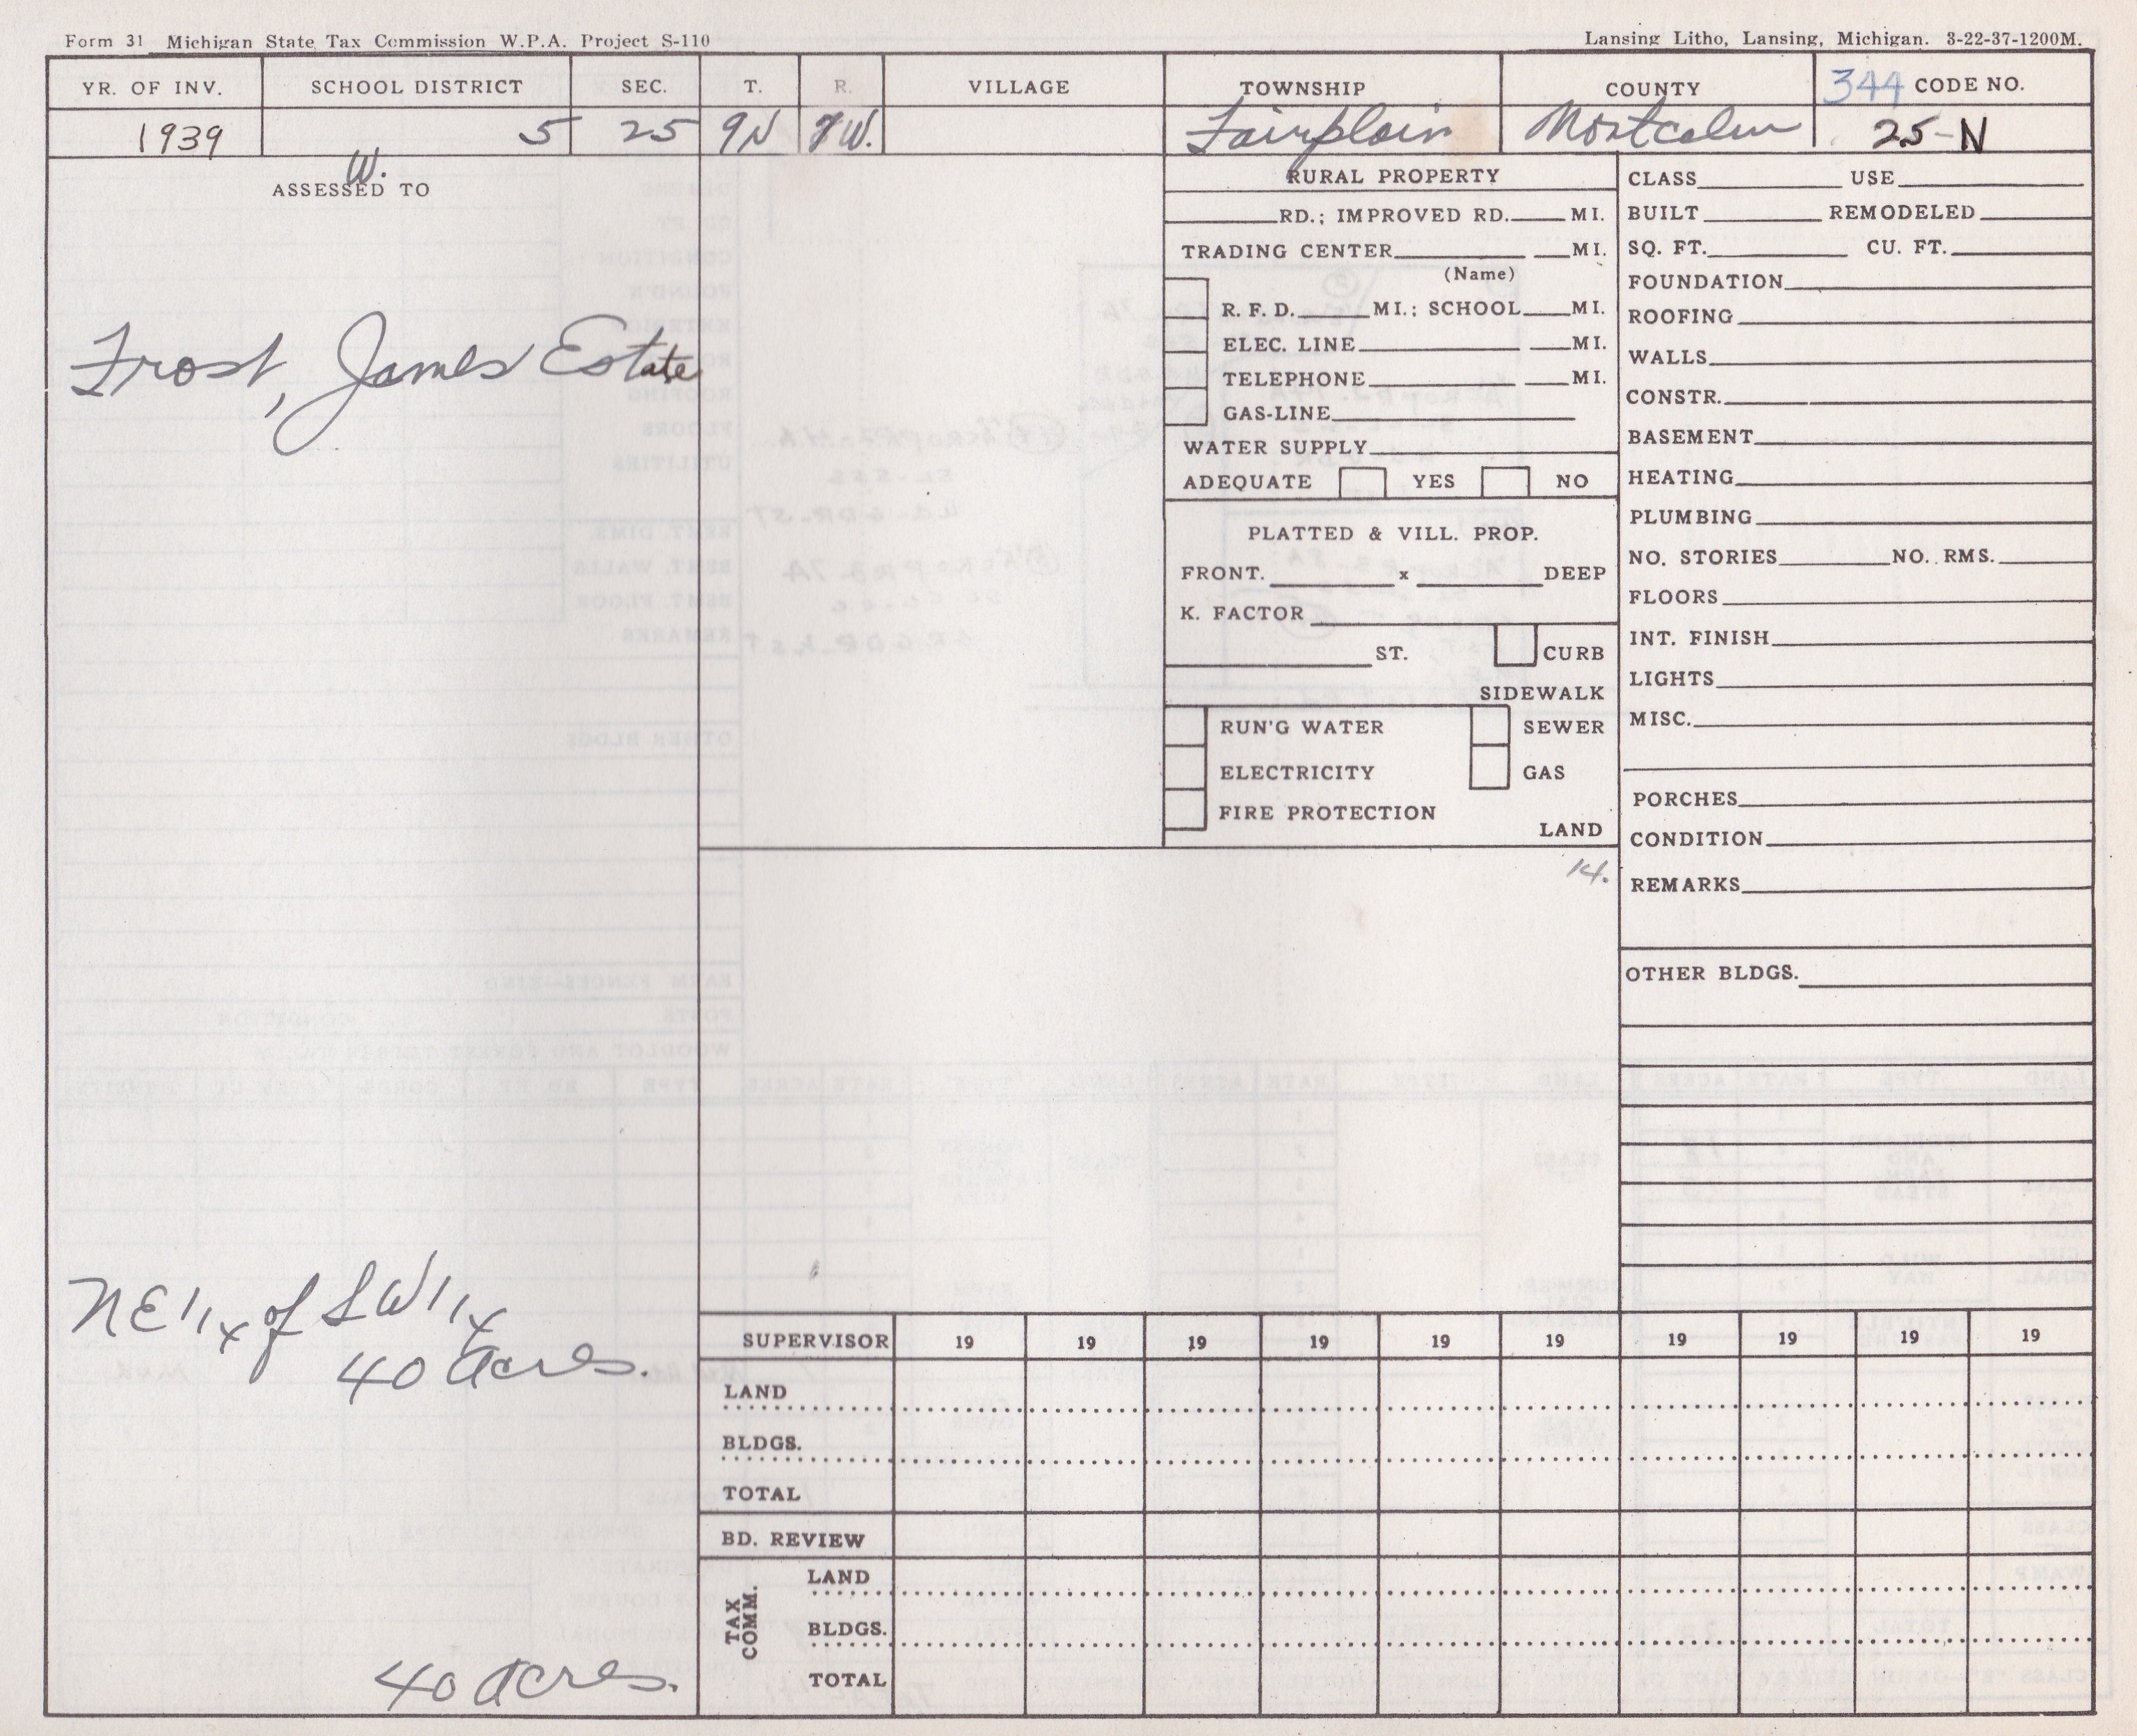 Form 31 Michigan State Tax Commission W.P.A. Project S-110
Lansing Litho, Lansing, Michigan. 3-22-37-1200M.
YR. OF INV. SCHOOL DISTRICT SEC. T. R. VILLAGE TOWNSHIP COUNTY 344 CODE NO.
1939 5 25 9N W. Fairplain Montcalm 25-N
W.
ASSESSED TO
Frost, James Estate
NE 1/4 of SW 1/4
40 acres.
40 acres.
RURAL PROPERTY
RD.; IMPROVED RD. MI.
TRADING CENTER MI.
(Name)
R. F. D. MI.; SCHOOL MI.
ELEC. LINE MI.
TELEPHONE MI.
GAS-LINE
WATER SUPPLY
ADEQUATE YES NO
PLATTED & VILL. PROP.
FRONT. x DEEP
K. FACTOR
ST. CURB
SIDEWALK
RUN'G WATER SEWER
ELECTRICITY GAS
FIRE PROTECTION
LAND
14.
CLASS USE
BUILT REMODELED
SQ. FT. CU. FT.
FOUNDATION
ROOFING
WALLS
CONSTR.
BASEMENT
HEATING
PLUMBING
NO. STORIES NO. RMS.
FLOORS
INT. FINISH
LIGHTS
MISC.
PORCHES
CONDITION
REMARKS
OTHER BLDGS.
SUPERVISOR 19 19 19 19 19 19 19 19 19 19
LAND
BLDGS.
TOTAL
BD. REVIEW
TAX COMM.
LAND
BLDGS.
TOTAL